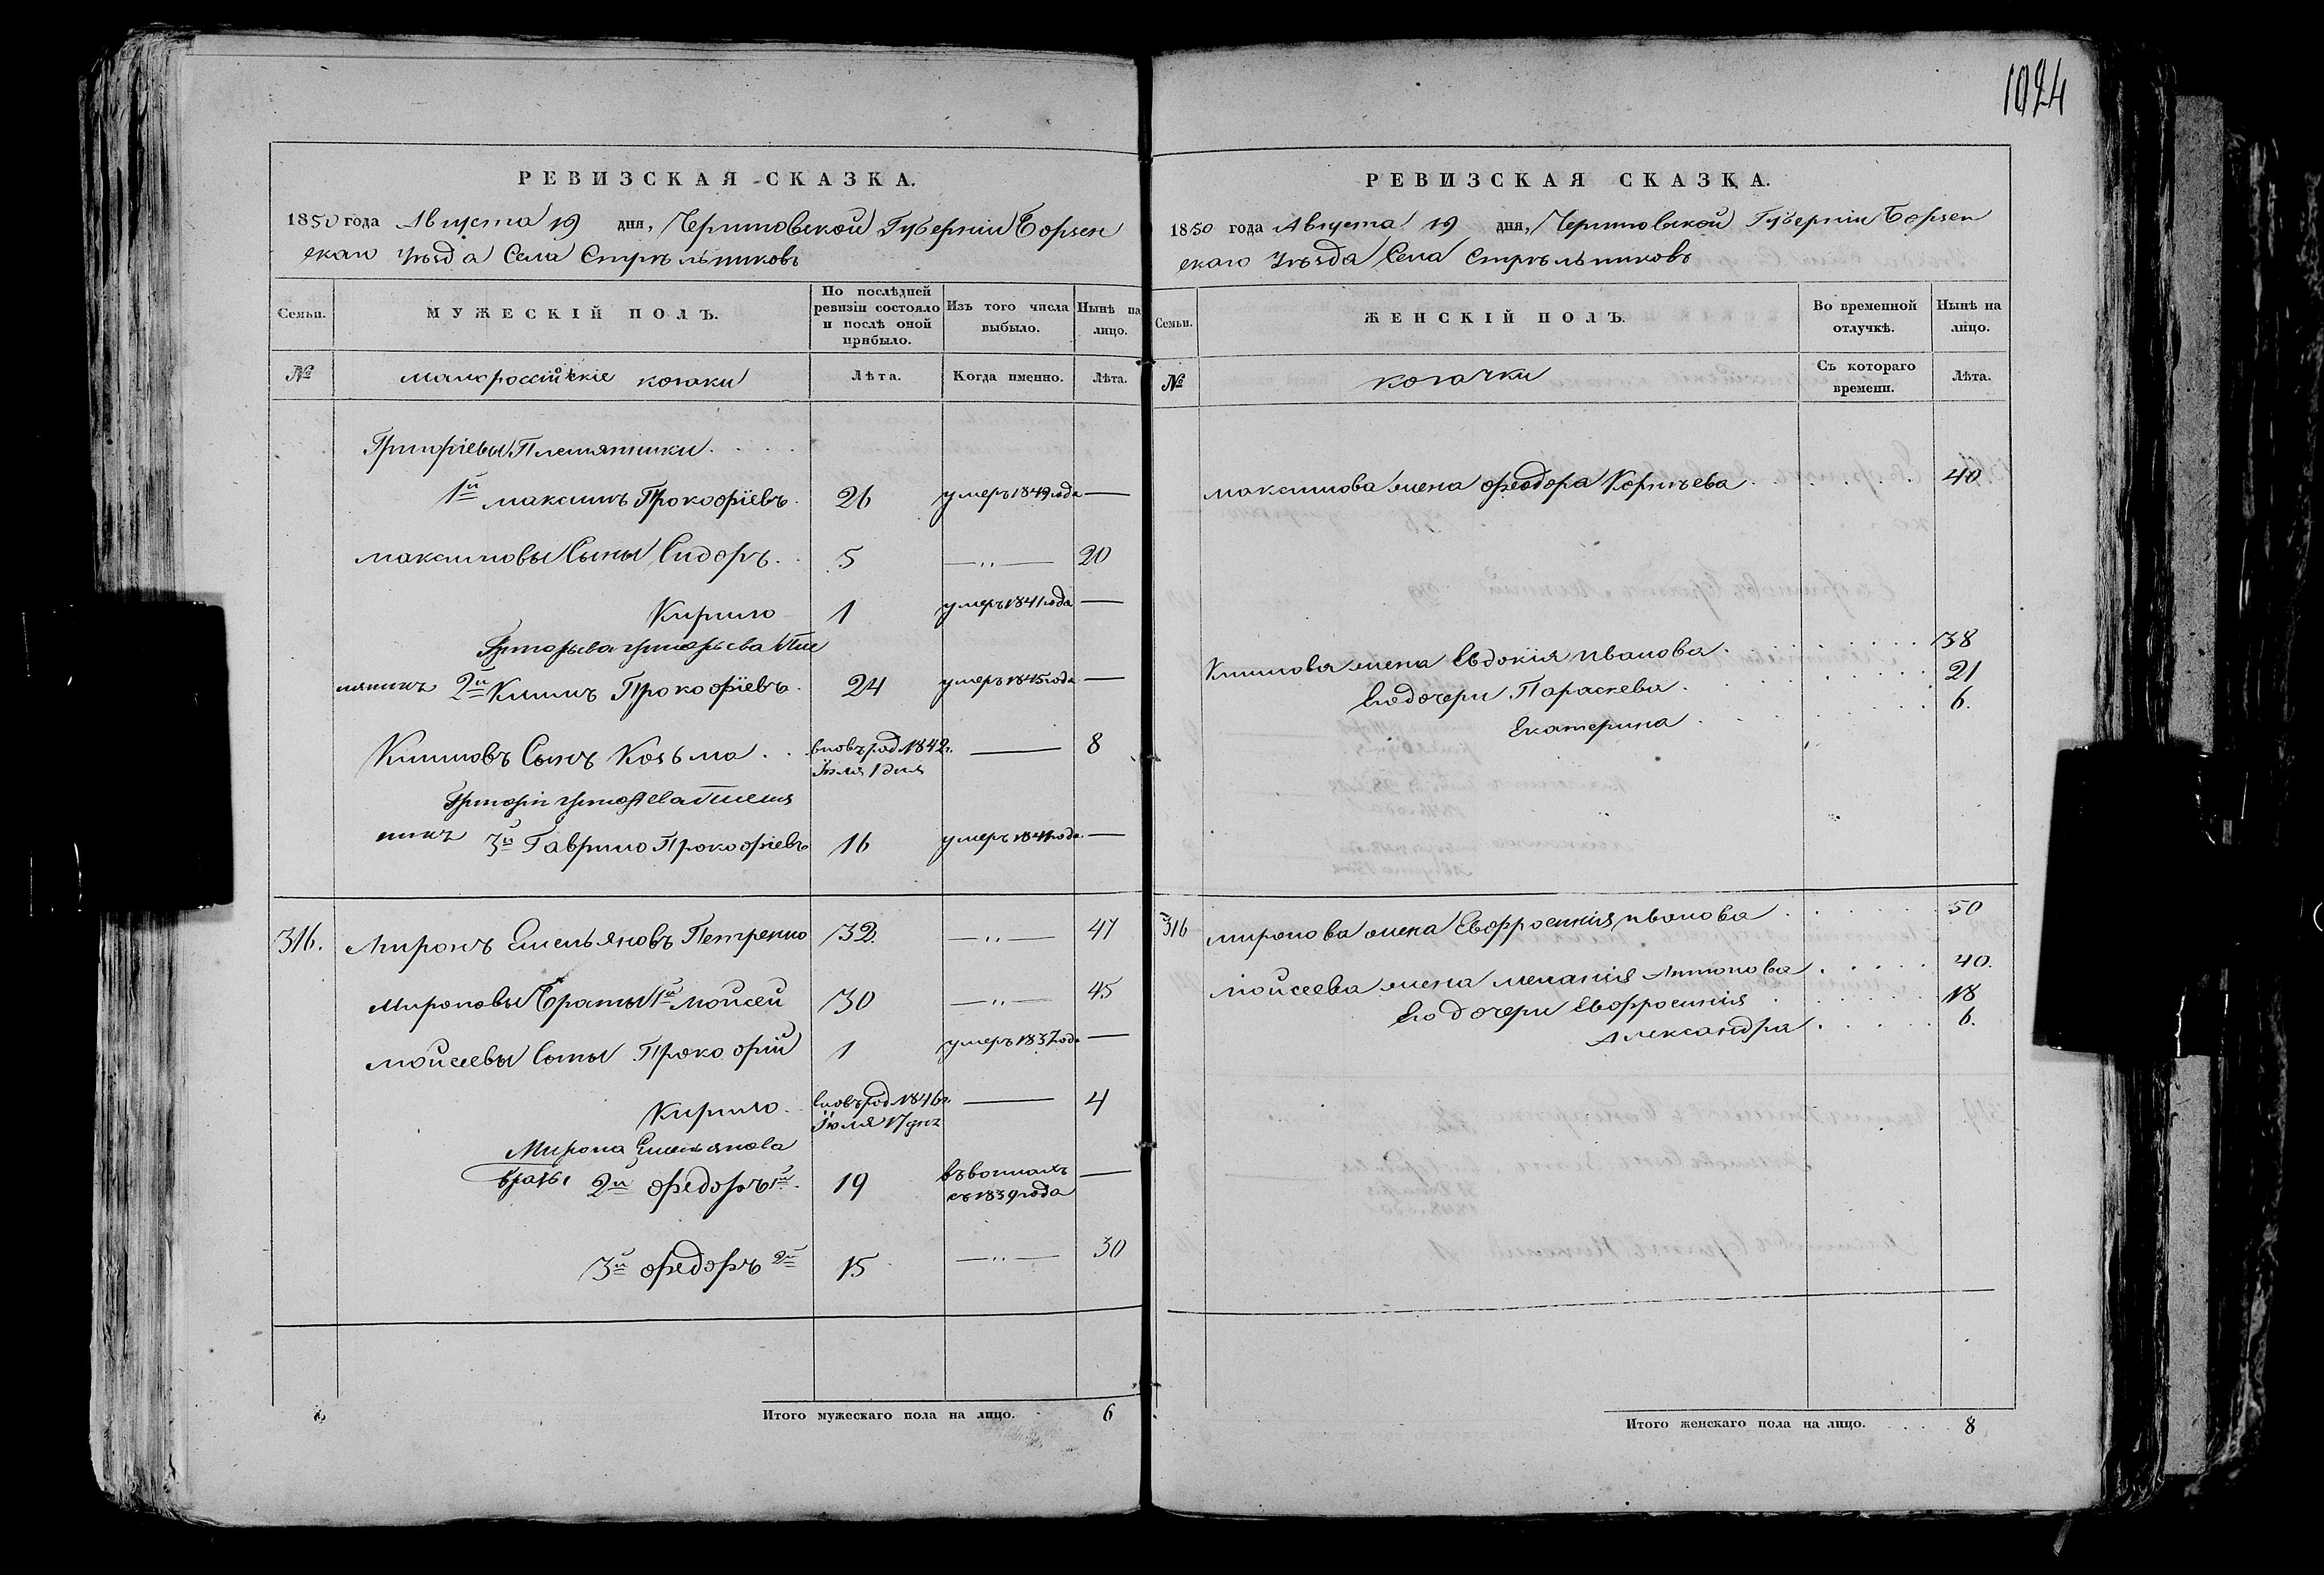 1024
РЕВИЗСКАЯ СКАЗКА.
1850 года Августа 19 дня, Черниговской Губерніи Борзен
скаго Уѣзда Села Стрѣльниковъ
Семьи. МУЖЕСКІЙ ПОЛЪ. По послѣдней ревизіи состояло и послѣ оной прибыло. Изъ того числа выбыло. Нынѣ на лицо.
№ Малороссійскіе козаки Лѣта. Когда именно. Лѣта.
Григоріевы Племянники
1й Максимъ Прокофіевъ 26 умеръ 1849 года —
Максимовы Сыны Сидоръ 5 —„— 20
Кирило 1 умеръ 1841 года —
Григорьева Пле
мяникъ 2й Климъ Прокофіевъ 24 умеръ 1845 года —
Климовъ Сынъ Козьма вновь род. 1842 г. — 8
Іюля 1 дня
Племя
никъ 3й Гаврило Прокофіевъ 16 умеръ года —
316. Миронъ Емельяновъ Петренко 32 —„— 47
Мироновы Браты 1й Мойсей 30 —„— 45
Мойсеевы Сыны Прокофій 1 умеръ 1837 года —
Кирило вновь род. 1846 г. — 4
Іюля 17 дня
Мирона Емельянова
браты 2й Федоръ 1й 19 —
съ 1839 года
3й Федоръ 2й 15 —„— 30
Итого мужескаго пола на лицо. 6
РЕВИЗСКАЯ СКАЗКА.
1850 года Августа 19 дня, Черниговской Губерніи Борзен
скаго Уѣзда Села Стрѣльниковъ
Семьи. ЖЕНСКІЙ ПОЛЪ. Во временной отлучкѣ. Нынѣ на лицо.
№ козачки Съ котораго времени. Лѣта.
Максимова жена Феодора Корнѣева 40
Климова жена Евдокія Иванова 38
Его дочери Параскева 21
Екатерина 6.
316 Миронова жена Евфросинія Иванова 50
Мойсеева жена Меланія Антонова 40.
Его дочери Евфросинія 18
Александра 6.
Итого женскаго пола на лицо. 8